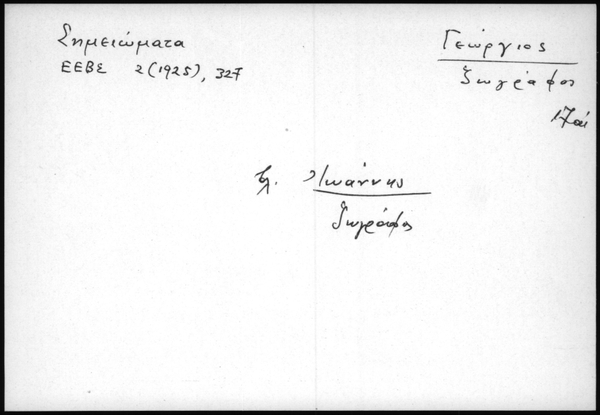 Σημειώματα
ΕΕΒΣ 2 (1925), 327
Γεώργιος
ζωγράφος
17 αἰ
βλ. Ἰωάννης
ζωγράφος